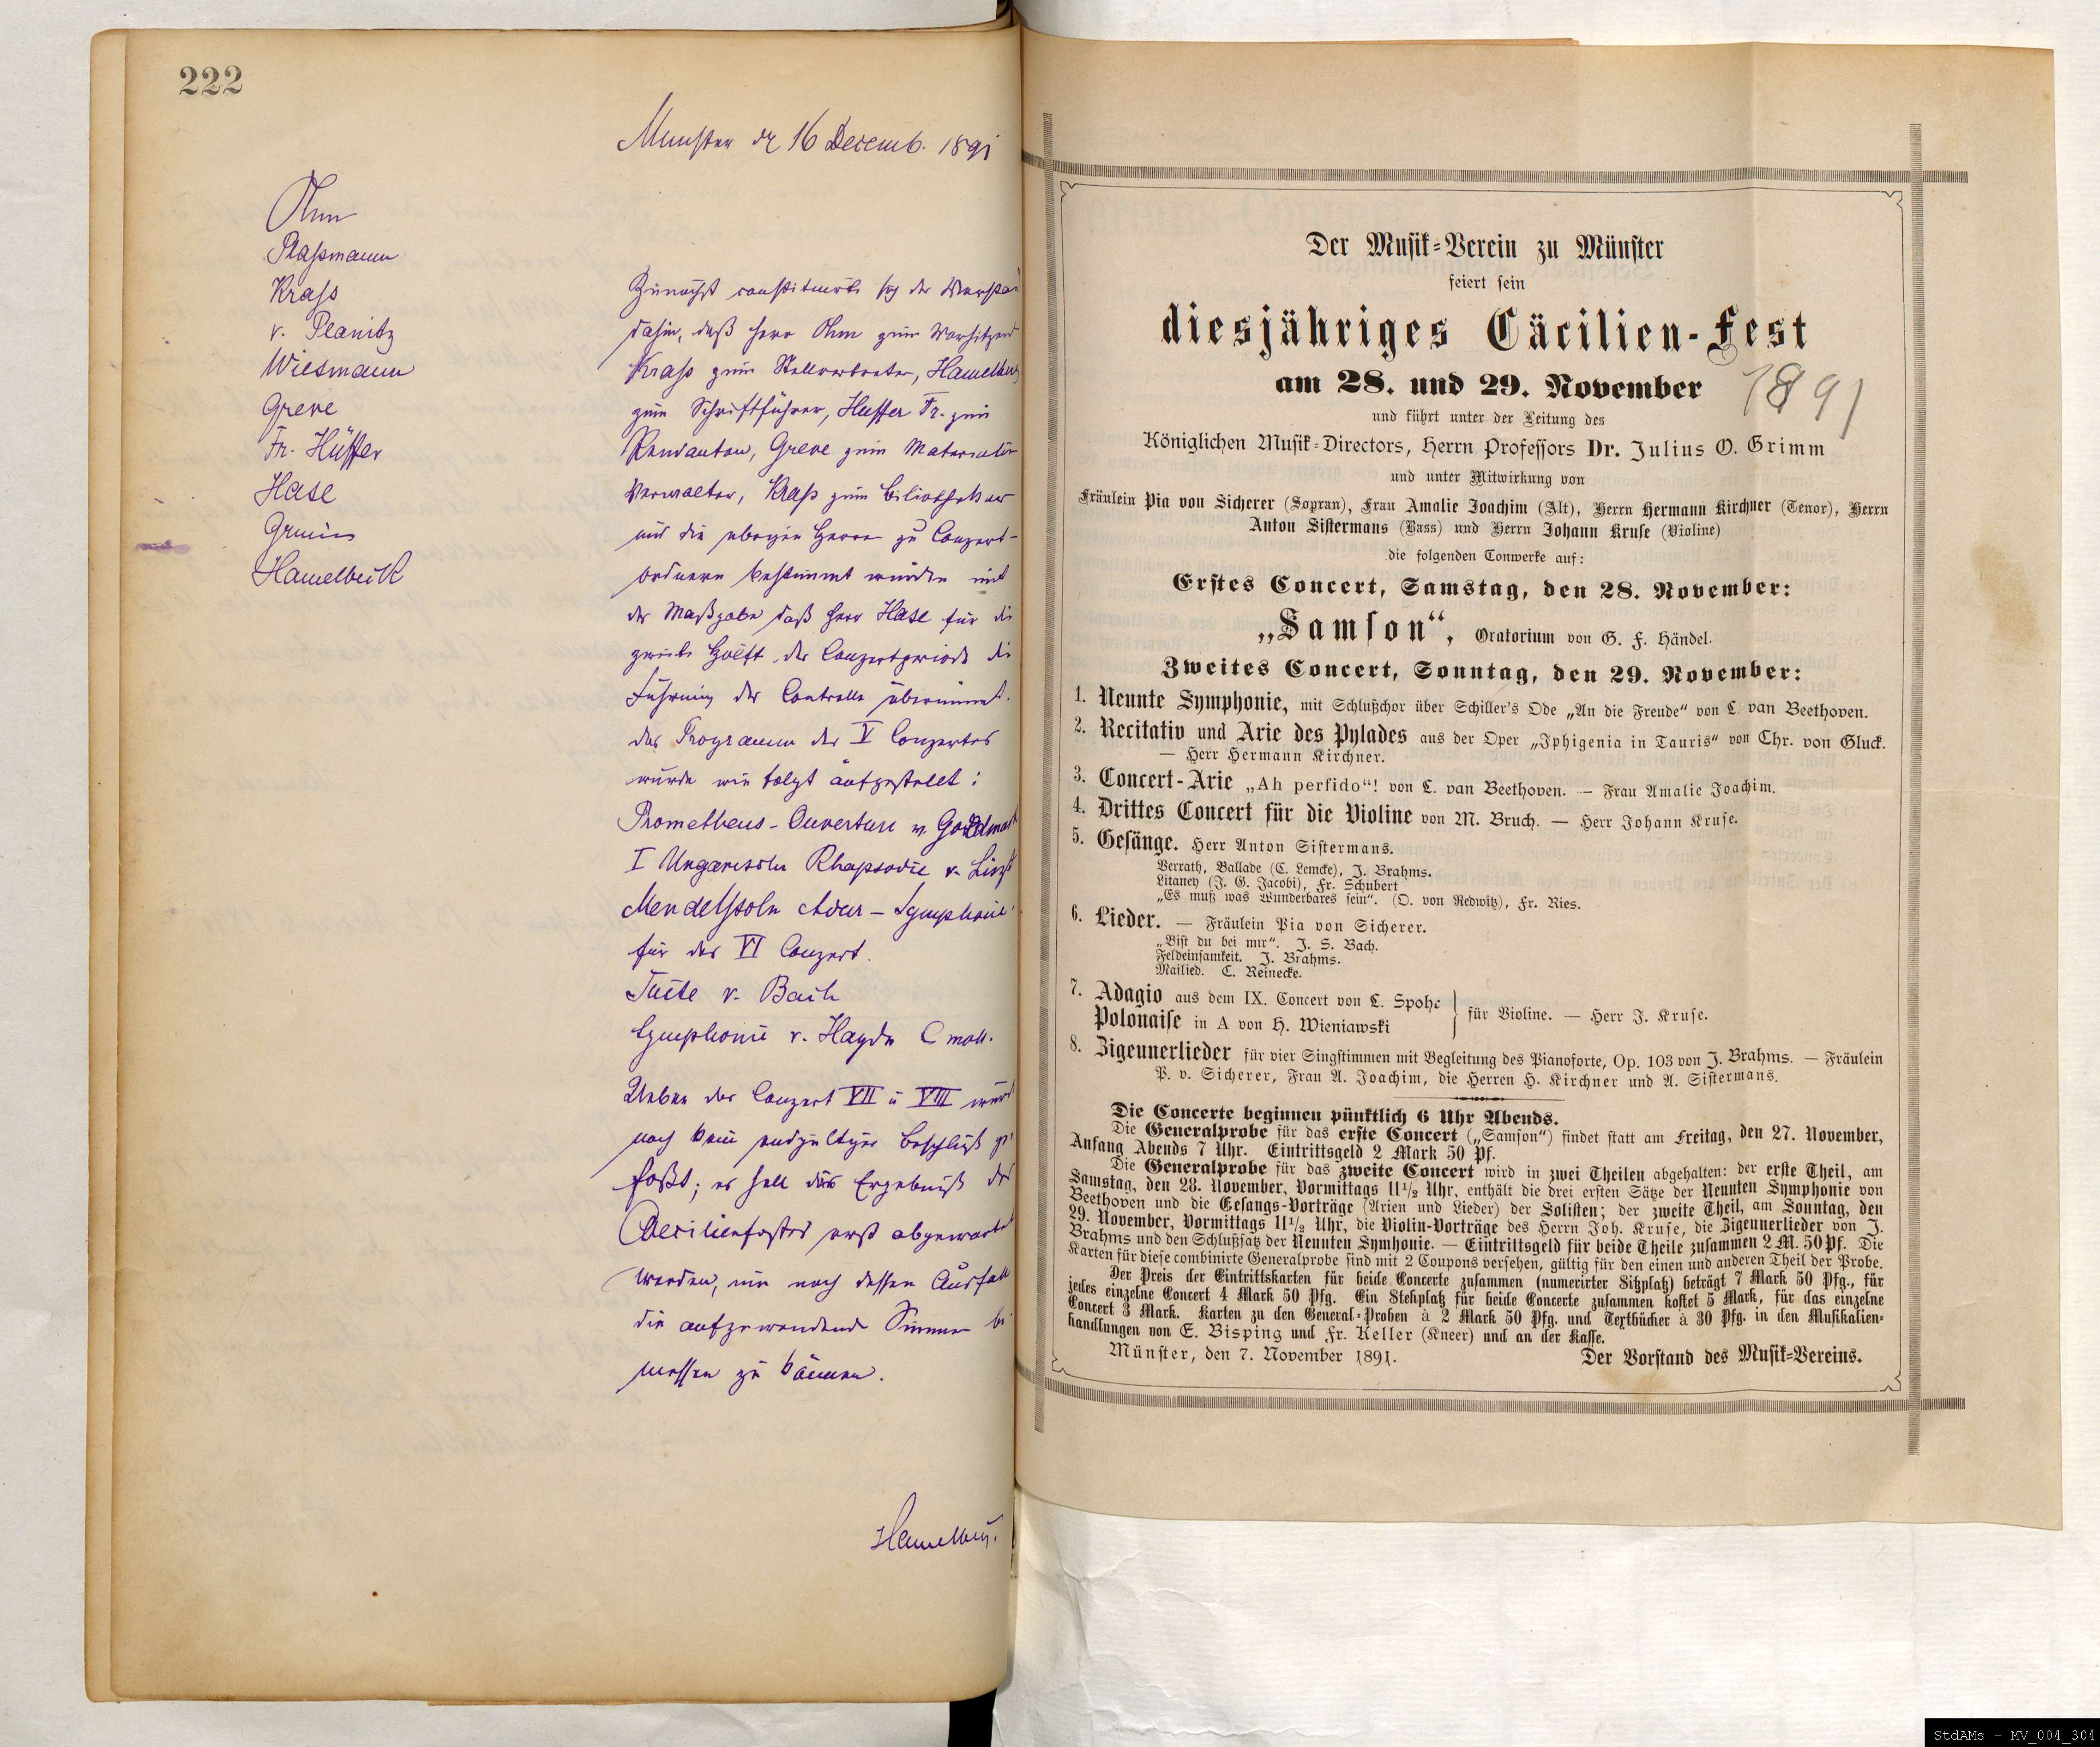 222
Münster d 16 Decemb. 1891
Ohm
Plassmann
Krass
v. Planitz
Wiesmann
Greve
Fr. Hüffer
Hase
Hamelbeck
Zunächst constituirte sich der
dahin, daß Herr Ohm zum
Krass zum Stellvertreter,
zum Schriftführer, Hüffer Fr. zum
Rendanten, Greve zum
Verwalter, Krass zum
und die übrigen Herren zu Conzert-
ordnern bestimmt wurden mit
der Maßgabe daß Herr Hase für die
zweite Hälfte der Conzertperiode die
Führung der Controlle übernimmt.
das Programm des V Conzertes
wurde wie folgt aufgestellt:
Prometheus-Ouverture v.
I Ungarische Rhapsodie v. Liszt
Mendelssohn Adur-Symphonie
für das VI Conzert.
Suite v. Bach
Symphonie v. Haydn C moll.
Ueber das Conzert VII u VIII
noch kein endgültiger Beschluß
faßt; es soll das Ergebniß des
Caecilienfestes erst abgewartet
werden, um nach dessen Ausfall
die aufzuwendende Summe be
messen zu können.
Der Musik-Verein zu Münster
feiert sein
diesjähriges Cäcilien-Fest
am 28. und 29. November 1891
und führt unter der Leitung des
Königlichen Musik-Directors, Herrn Professors Dr. Julius O. Grimm
und unter Mitwirkung von
Fräulein Pia von Sicherer (Sopran), Frau Amalie Joachim (Alt), Herrn Hermann Kirchner (Tenor), Herrn
Anton Sistermans (Bass) und Herrn Johann Kruse (Violine)
die folgenden Tonwerke auf:
Erstes Concert, Samstag, den 28. November:
„Samson“, Oratorium von G. F. Händel.
Zweites Concert, Sonntag, den 29. November:
1. Neunte Symphonie, mit Schlußchor über Schiller's Ode „An die Freude“ von L van Beethoven.
2. Recitativ und Arie des Pylades aus der Oper „Iphigenia in Tauris“ von Chr. von Gluck.
— Herr Hermann Kirchner.
3. Concert-Arie „Ah perfido“! von L. van Beethoven. — Frau Amalie Joachim.
4. Drittes Concert für die Violine von M. Bruch. — Herr Johann Kruse.
5. Gesänge. Herr Anton Sistermans.
Verrath, Ballade (C. Lemcke), J. Brahms.
Litaney (J. G. Jacobi), Fr. Schubert
„Es muß was Wunderbares sein“. (O. von Redwitz), Fr. Ries.
6. Lieder. — Fräulein Pia von Sicherer.
„Bist du bei mir“. J. S. Bach.
Feldeinsamkeit. J. Brahms.
Mailied. C. Reinecke.
7. Adagio aus dem IX. Concert von L. Spohr
Polonaise in A von H. Wieniawski } für Violine. — Herr J. Kruse.
8. Zigeunerlieder für vier Singstimmen mit Begleitung des Pianoforte, Op. 103 von J. Brahms. — Fräulein
P. v. Sicherer, Frau A. Joachim, die Herren H. Kirchner und A. Sistermans.
Die Concerte beginnen pünktlich 6 Uhr Abends.
Die Generalprobe für das erste Concert („Samson“) findet statt am Freitag, den 27. November,
Anfang Abends 7 Uhr. Eintrittsgeld 2 Mark 50 Pf.
Die Generalprobe für das zweite Concert wird in zwei Theilen abgehalten: der erste Theil, am
Samstag, den 28. November, Vormittags 11½ Uhr, enthält die drei ersten Sätze der Neunten Symphonie von
Beethoven und die Gesangs-Vorträge (Arien und Lieder) der Solisten; der zweite Theil, am Sonntag, den
29. November, Vormittags 11½ Uhr, die Violin-Vorträge des Herrn Joh. Kruse, die Zigeunerlieder von J.
Brahms und den Schlußsatz der Neunten Symhonie. — Eintrittsgeld für beide Theile zusammen 2 M. 50 Pf. Die
Karten für diese combinirte Generalprobe sind mit 2 Coupons versehen, gültig für den einen und anderen Theil der Probe.
Der Preis der Eintrittskarten für beide Concerte zusammen (numerirter Sitzplatz) beträgt 7 Mark 50 Pfg., für
jedes einzelne Concert 4 Mark 50 Pfg. Ein Stehplatz für beide Concerte zusammen kostet 5 Mark, für das einzelne
Concert 3 Mark. Karten zu den General-Proben à 2 Mark 50 Pfg. und Textbücher à 30 Pfg. in den Musikalien-
handlungen von E. Bisping und Fr. Keller (Kneer) und an der Kasse.
Münster, den 7. November 1891. Der Vorstand des Musik-Vereins.
StdAMs - MV_004_304